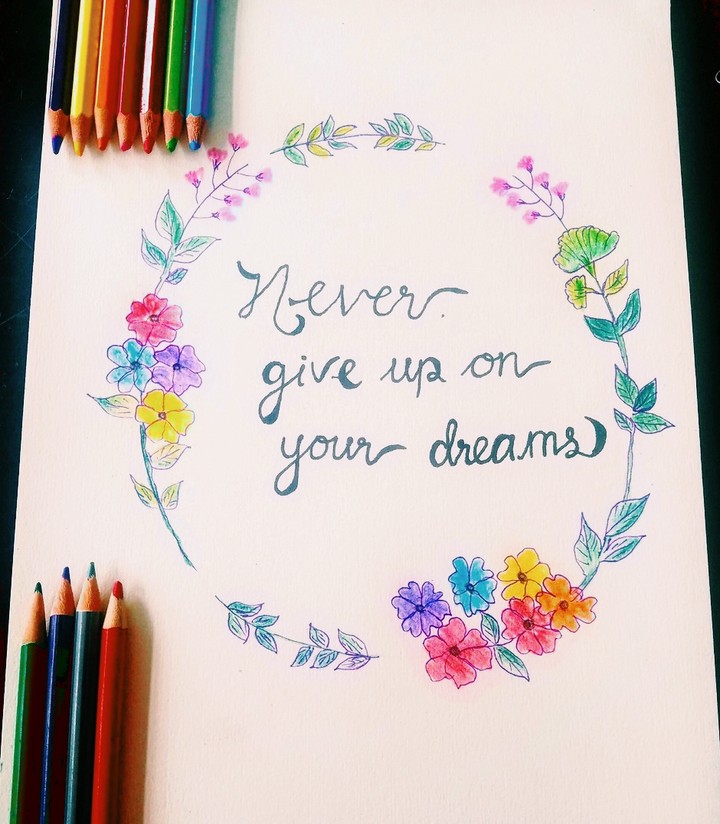 Never
give up on
your dreams